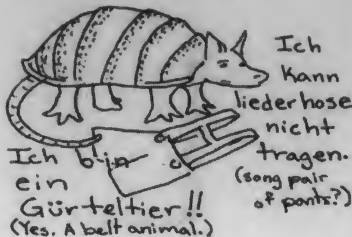 Ich
Kann
liederhose
nicht
tragen.
(song pair
of pants?)
Ich bin
ein
Gürteltier!!
(Yes. A belt animal.)